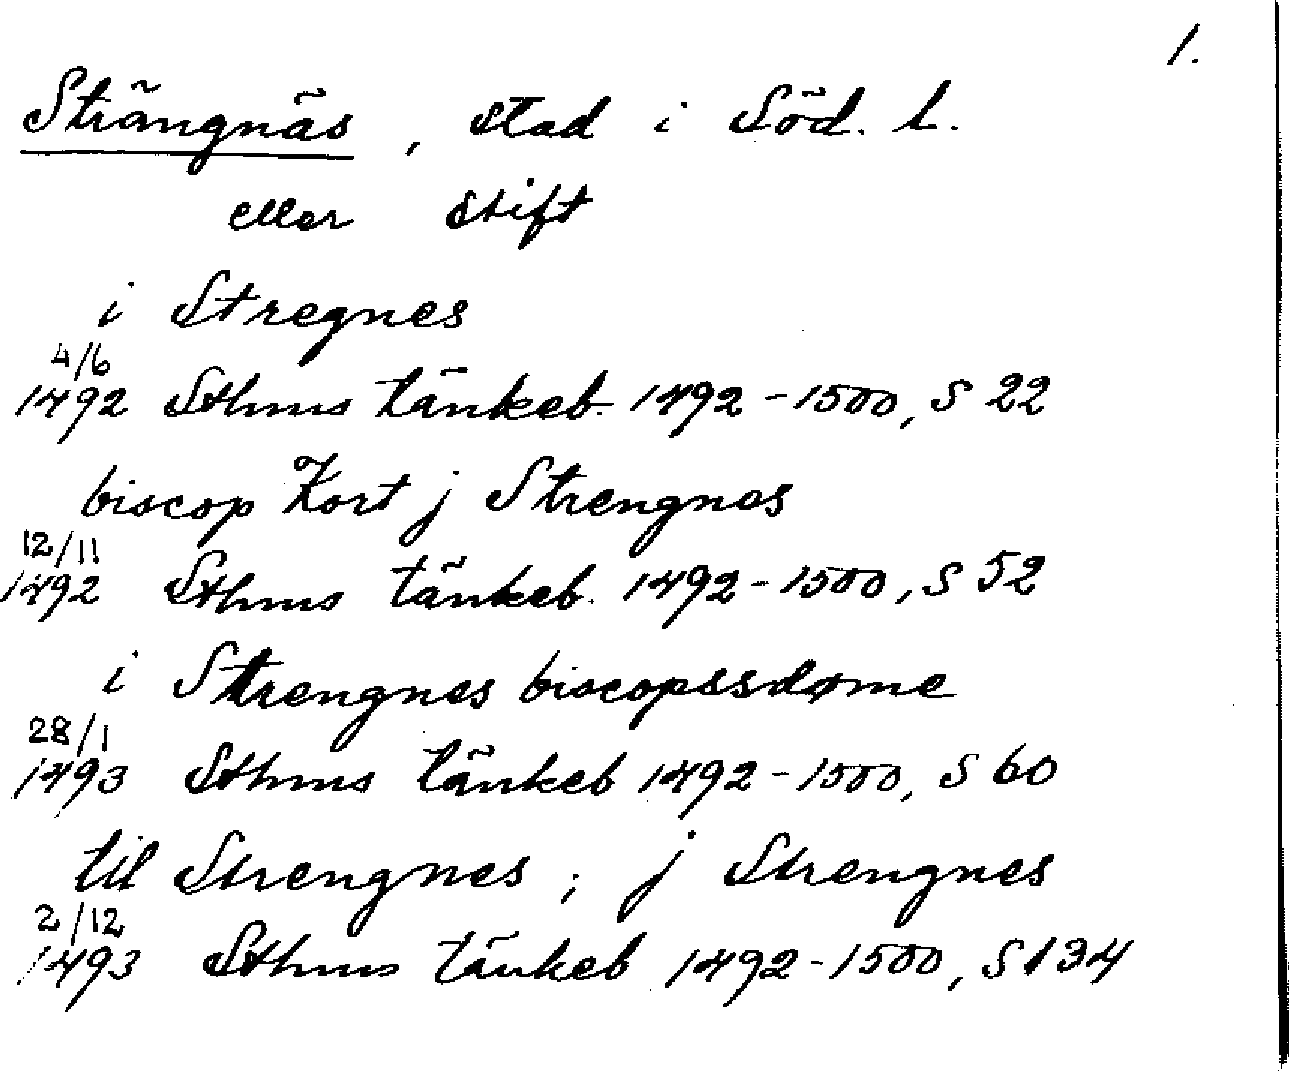 1.
Strängnäs, stad i Söd. l.
eller stift
i Stregnes
4/6
1492 Sthms tänkeb. 1492-1500, S 22
biscop Kort j Strengnes
12/11
1492 Sthms tänkeb. 1492-1500, S 52
i Strengnes biscopssdøme
28/1
1493 Sthms tänkeb 1492-1500, S 60
til Strengnes ; j Strengnes
2/12
1493 Sthms tänkeb 1492-1500, S 134